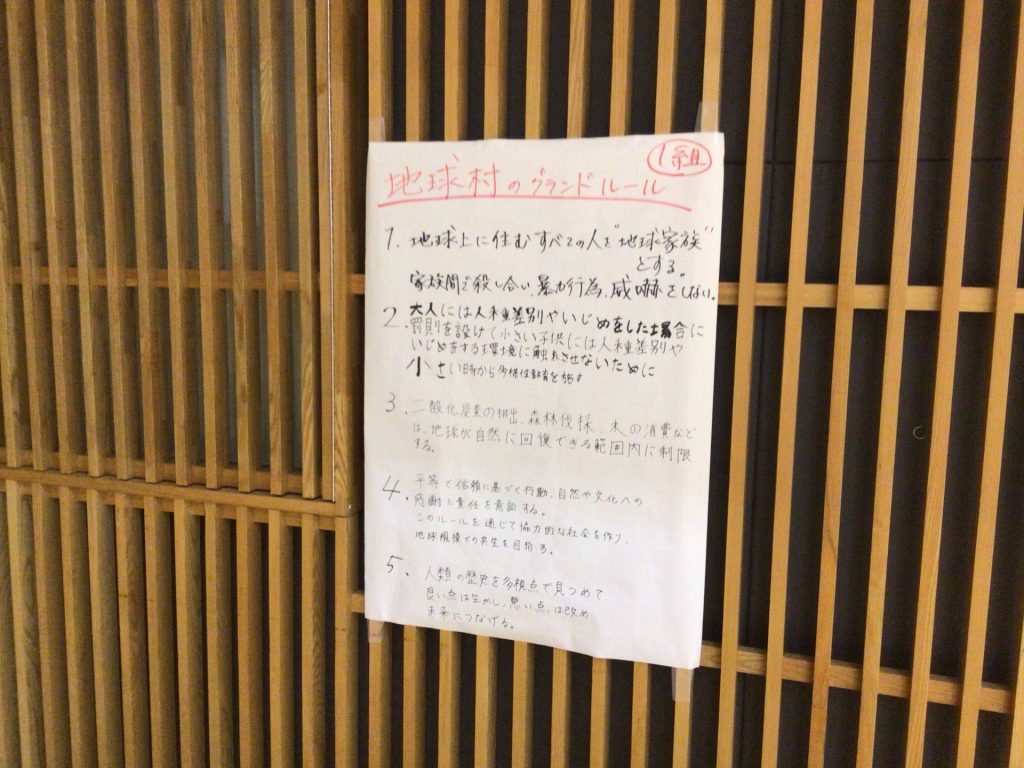 1組
地球村のグランドルール
1. 地球上に住むすべての人を"地球家族"
とする。
家族間で殺し合い、暴力行為、威嚇をしない。
2. 大人には人種差別やいじめをした場合に
罰則を設けて小さい子供には人種差別や
いじめをする環境に触れさせないために
小さい時から多様性教育を施す
3. 二酸化炭素の排出、森林伐採、木の消費など
は、地球が自然に回復できる範囲内に制限
する。
4. 平等で信頼に基づく行動、自然や文化への
感謝と責任を意識する。
このルールを通じて協力的な社会を作り、
地球規模での共生を目指す。
5. 人類の歴史を多視点で見つめて
良い点は生かし、悪い点は改め
未来につなげる。